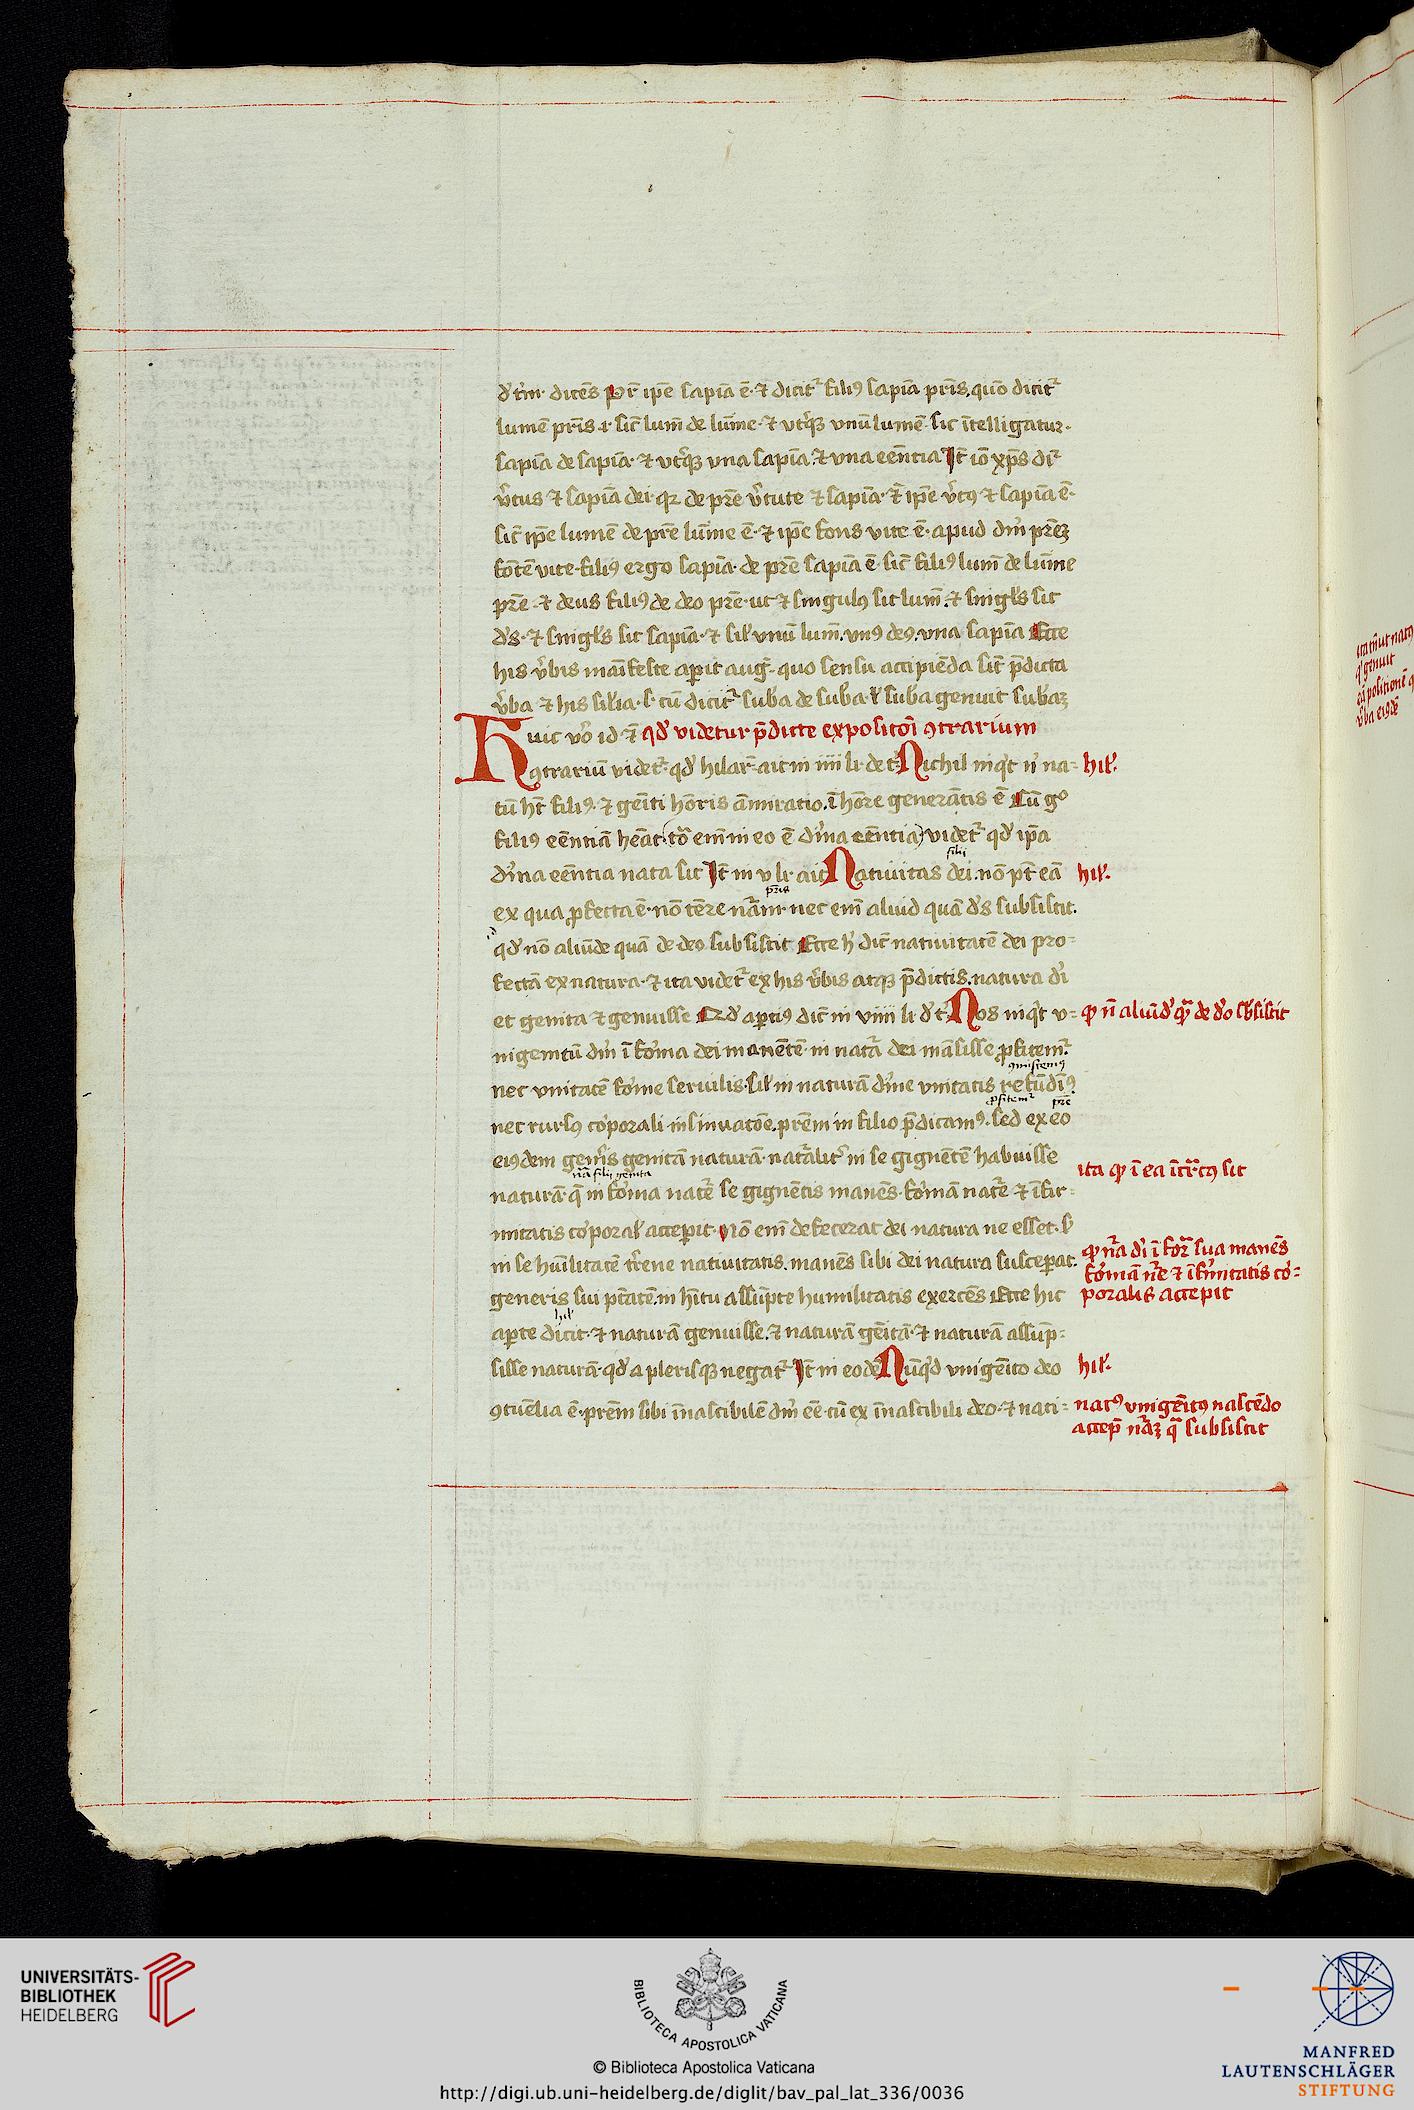 d' t'in· dicēs Pr̄ ip̄e sapīa ē· ⁊ dicit᷑ filiꝰ sapīa pr̄is, quō dicit᷑
lumē pr̄is ⁊· sic̄ lum̄ de lum̄ine· ⁊ utq̄ꝫ vnū lumē sic ītelligatur·
sapīa de sapīa· ⁊ utq̄ꝫ vna sapīa ⁊ vna eēntia It̄ iō xp̄s dr̄
v̄tus ⁊ sapīa dei· qꝛ de pr̄e v̄tute ⁊ sapīa· ⁊ ip̄e v̄tꝰ ⁊ sapīa ē·
sic̄ ip̄e lumē de pr̄e lum̄ine ē· ⁊ ip̄e fons vite ē· apud dm̄ pr̄eꝫ
fōtē vite· filiꝰ ergo sapīa· de pr̄e sapīa ē sic̄ filiꝰ lum̄ de lum̄ine
pr̄e· ⁊ deus filiꝰ de deo pr̄e· ut ⁊ singulꝰ sit lum̄ ⁊ singl's sit
d's· ⁊ singl's sit sapīa· ⁊ sil' vnū lum̄· vnꝰ deꝰ· vna sapīa Ecce
his v̄bis maīfeste aꝑit auḡ· quo sensu accipiēda sīt p̄dicta
v̄ba ⁊ his sil'ia· s· cū dicit᷑ sub̄a de sub̄a· ł sub̄a genuit sub̄aꝫ
Huic v̄o id ⁊ qd' videtur p̄dicte expositōi ꝯtrarium
ꝯtrariū videt᷑· qd' hilar᷑ ait in iiii li· de t᷑· Nichil inq̇t n̄ na=
tū ht̄ filiꝰ· ⁊ geīti hōris āmiratio, ī hōre generātis ē Cū gᵒ
filiꝰ eēntiā heāt (tō em̄ in eo ē dīna eēntia) videt᷑ qd' ip̄a
dīna eēntia nata sit It̄ in v li· ait Natiuitas dei· nō pt̄ eā
filij
ex qua ꝓfecta ē· nō tēre nāṁ· nec em̄ aliud quā d's subsistit·
pr̄is
qd' nō aliūde quā de deo subsistit Ecce h' dic̄ natiuitatē dei pro=
fectā ex natura· ⁊ ita videt᷑ ex his v̄bis atqꝫ p̄dictis· natura dī
et genita ⁊ genuisse Qd' aꝑtiꝰ dic̄ in viiii li d' t᷑ Nos inq̇t v=
nigenitū dm̄ ī fōma dei manētē· in nat᷑a dei māsisse ꝓfitem᷑
nec vnitatē fōme seruilis· sil' in naturā dīne vnitatis refūdīꝰ
nec rursꝰ coꝛporali insinuatōe· pr̄em in filio p̄dicamꝰ· sed ex eo
ꝓfitem᷑ pr̄e
eiꝰdem gen̄is genitā naturā· nat᷑alit᷑ in se gignētē habuisse
nā filij genita
naturā· q̄ in fōma nat᷑e se gignētis manēs· fōmā nat᷑e ⁊ īfir=
mitatis coꝛporal' acceꝑit· Nō em̄ defecerat dei natura ne esset· s'
in se hūilitatē t᷑rene natiuitatis· manēs sibi dei natura susceꝑat·
generis sui ptātē· in hītu assūpte humilitatis exercēs Ecce hic
hil'
aꝑte dicit· ⁊ naturā genuisse· ⁊ naturā geītā· ⁊ naturā assūp=
sisse naturā· qd' a plerisqꝫ negat᷑ It̄ in eodē Nūq̇d vnigēito deo
ꝯtuēlia ē· pr̄em sibi īnascibilē dm̄ eē· cū ex īnascibili deo· ⁊ nati=
hil'·
hil'·
ꝙ n̄ aliūd' qᷓ de d'o sb̄sistit
ita ꝙ ī ea īt᷑ctꝰ sit
ꝙ nr̄a dī ī for᷑ sua manēs
fōmā nr̄e ⁊ īfīmitatis co=
poralis accepit
hil'·
natꝰ vnigēitꝰ nascēdo
accep̄ nr̄aꝫ qᷓ subsistit
ita
qͥ genuit
politionē
v̄ba eiꝰdē
UNIVERSITÄTS-
BIBLIOTHEK
HEIDELBERG
BIBLIOTECA APOSTOLICA VATICANA
© Biblioteca Apostolica Vaticana
http://digi.ub.uni-heidelberg.de/diglit/bav_pal_lat_336/0036
MANFRED
LAUTENSCHLÄGER
STIFTUNG